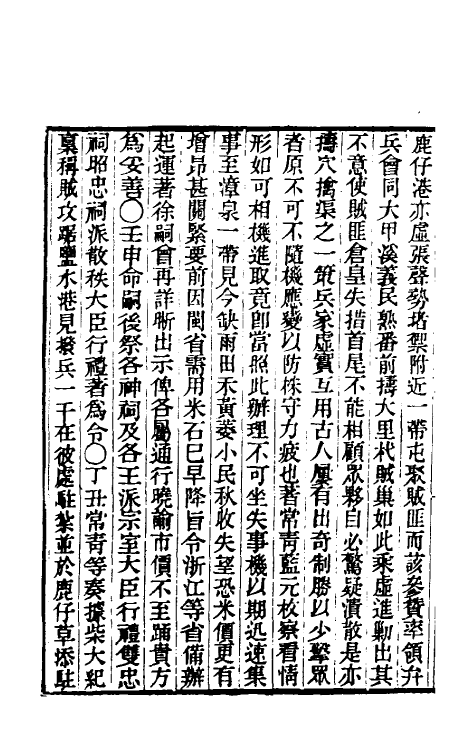 鹿仔港亦虛張聲勢塔架附近一帶屯聚賊匪而該參贊率領弁
兵會同大甲溪義民熟番前擣大里杙賊巢如此乘虛進勦出其
不意使賊匪倉皇失措首尾不能相顧眾夥自必驚疑潰散是亦
擣穴擒渠之一策兵家虛實互用古人屢有出奇制勝以少擊眾
者原不可不隨機應變以防株守力疲也著常青藍元枚察看情
形如可相機進取竟即當照此辦理不可坐失事機以期迅速集
事至漳泉一帶見今缺雨田禾黃萎小民秋收失望恐米價更有
增昂甚關緊要前因閩省需用米石已早降旨令浙江等省備辦
起運著徐嗣曾再詳晰出示俾各屬通行曉諭市價不至踊貴方
為妥善〇壬申命嗣後祭各神祠及各王派宗室大臣行禮雙忠
祠昭忠祠派散秩大臣行禮著為令〇丁丑常青等奏據柴大紀
稟稱賊攻踞鹽水港見撥兵一千在彼處駐紮並於鹿仔草添駐